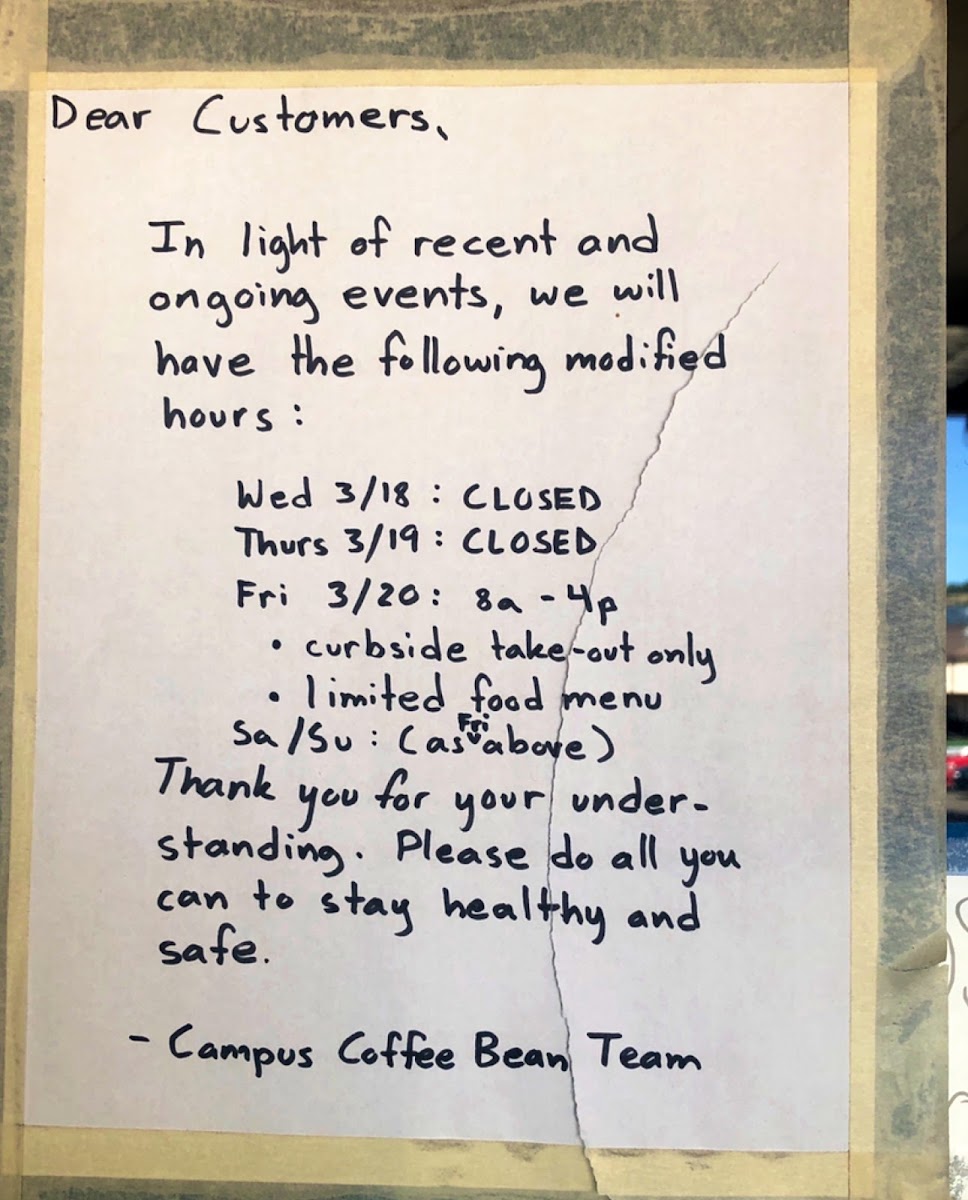 Dear Customers,
In light of recent and
ongoing events, we will
have the following modified
hours:
Wed 3/18: CLOSED
Thurs 3/19: CLOSED
Fri 3/20: 8a-4p
• curbside take-out only
• limited food menu
Sa/Su: (as Fri above)
Thank you for your under-
standing. Please do all you
can to stay healthy and
safe.
- Campus Coffee Bean Team